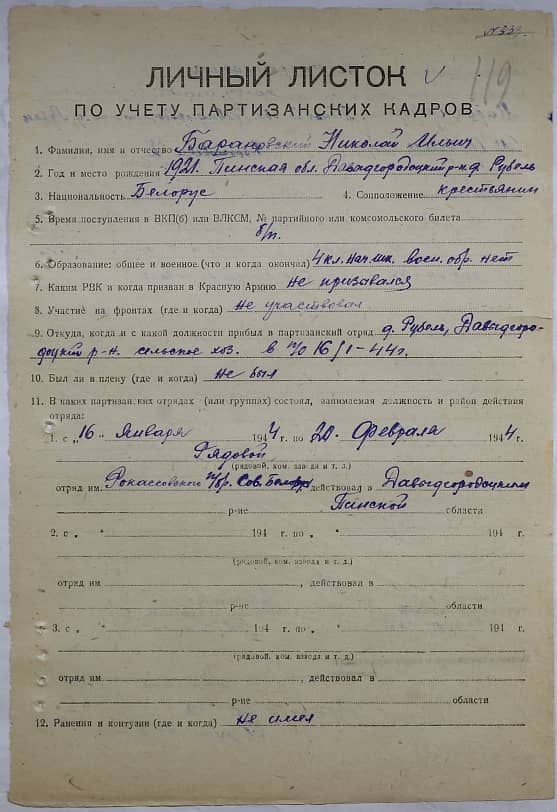 № 333.
119
ЛИЧНЫЙ ЛИСТОК
ПО УЧЕТУ ПАРТИЗАНСКИХ КАДРОВ
1. Фамилия, имя и отчество Барановский Николай Ильич
2. Год и место рождения 1921. Пинская обл. Давыдгородоцкий р-н д. Рубель
3. Национальность Белорус 4. Соцположение крестьянин
5. Время поступления в ВКП(б) или ВЛКСМ, № партийного или комсомольского билета
б/п.
6. Образование: общее и военное (что и когда окончил) 4 кл. нач. шк. воен. обр. нет
7. Каким РВК и когда призван в Красную Армию не призывался
8. Участие на фронтах (где и когда) не участвовал
9. Откуда, когда и с какой должности прибыл в партизанский отряд д. Рубель, Давыдгоро-
доцкий р-н. сельское хоз. в п/о 16/I-44г.
10. Был ли в плену (где и когда) не был
11. В каких партизанских отрядах (или группах) состоял, занимаемая должность и район действия
отряда:
1. с „16" Января 1944 г. по 20. Февраля 1944 г.
Рядовой
(рядовой, ком. взвода и т. д.)
отряд им. Рокассовского п/бр. Сов. Белор. действовал в Давыдгородоцком
р-не Пинской области
2. с „ " 194 г. по „ " 194 г.
(рядовой, ком. взвода и т. д.)
отряд им , действовал в
р-не области
3. с „ " 194 г. по „ " 194 г.
(рядовой, ком. взвода и т. д.)
отряд им , действовал в
р-не области
12. Ранения и контузии (где и когда) не имел